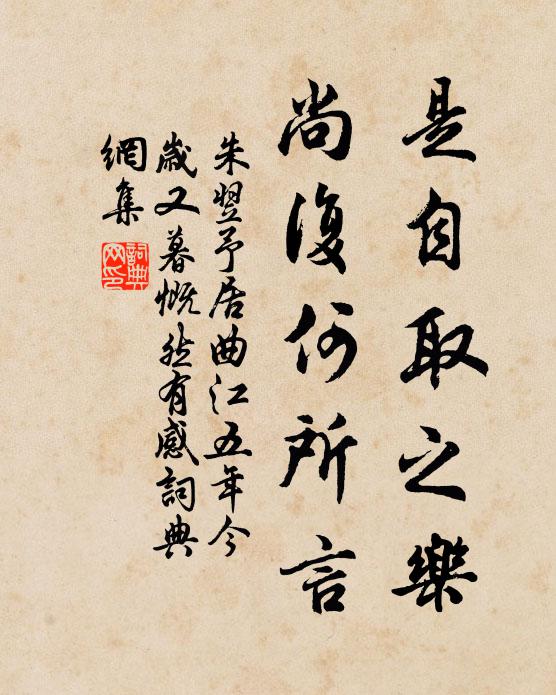 是自取之樂
尚復何所言
朱翌予居曲江五年今
歲又暮慨然有感詞典
網集
詞典網印